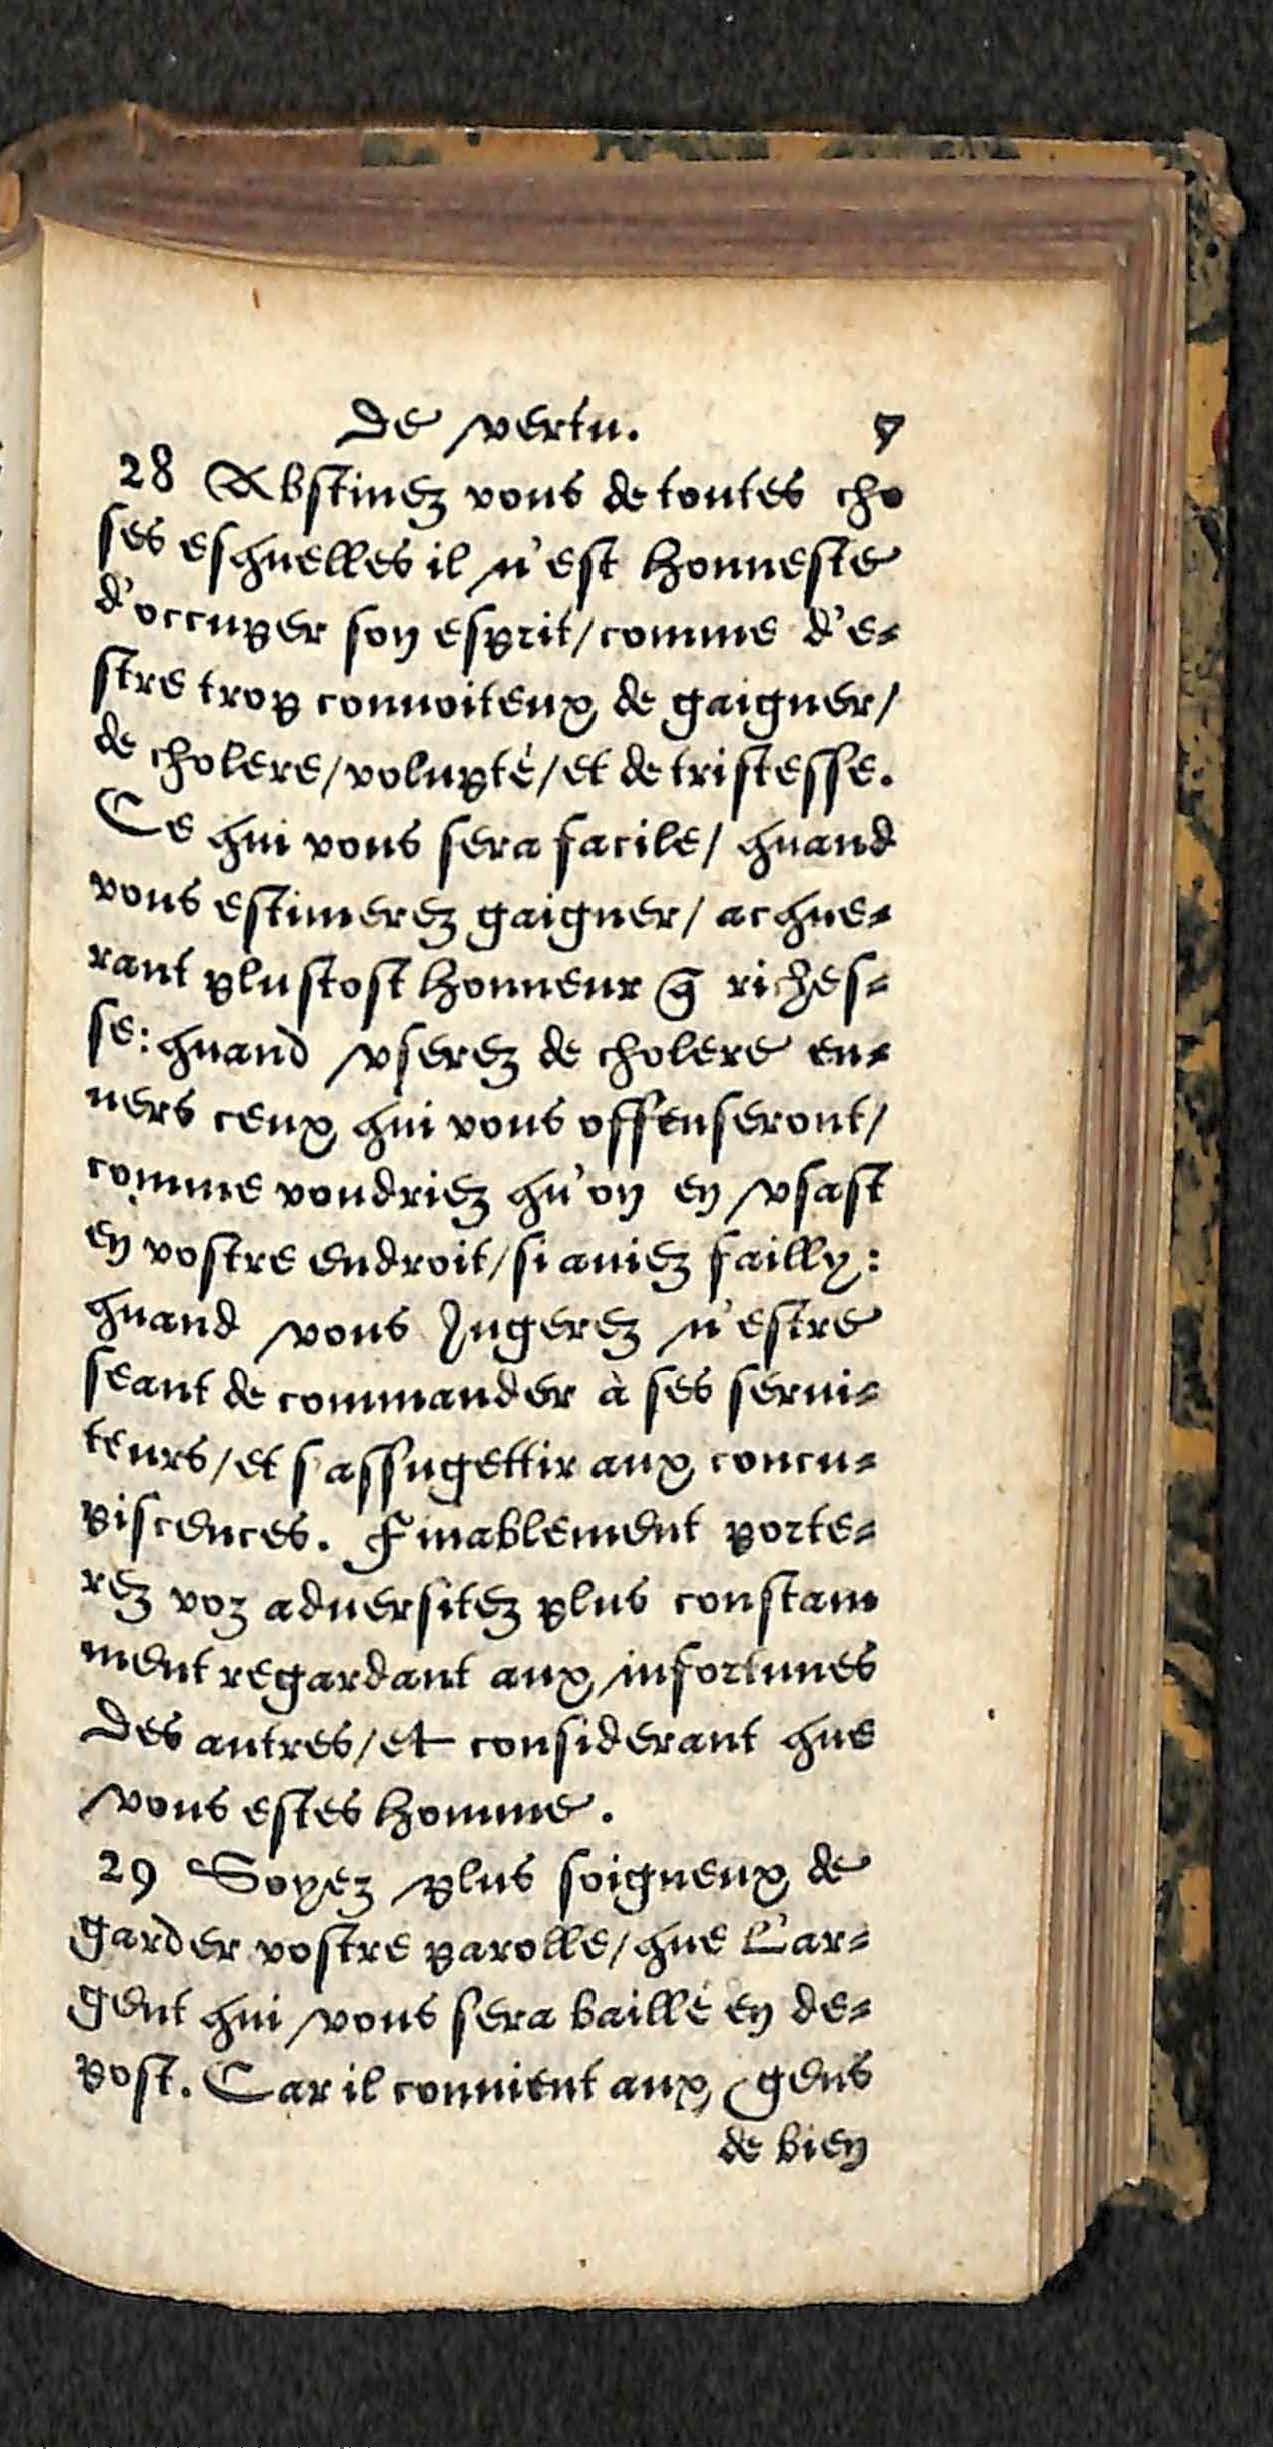 de vertu. 7
28 Abstinez vous de toutes cho
ses esquelles il n'est honneste
d'occuper son esprit/comme d'e-
stre trop conuoiteux de gaigner/
de cholere/volupté/et de tristesse.
Ce qui vous sera facile/ quand
vous estimerez gaigner/ acque-
rant plustost honneur q̃ riches-
se: quand vserez de cholere en-
uers ceux qui vous offenseront/
comme voudriez qu'on en vsast
en vostre endroit/si auiez failly:
quand vous Jugerez n'estre
seant de commander à ses serui-
teurs/et s'assugettir aux concu-
piscences. Finablement porte-
rez voz aduersitez plus constam
ment regardant aux infortunes
des autres/et considerant que
vous estes homme.
29 Soyez plus soigneux de
garder vostre parolle/que l'ar-
gent qui vous sera baillé en de-
post. Car il conuient aux gens
de bien